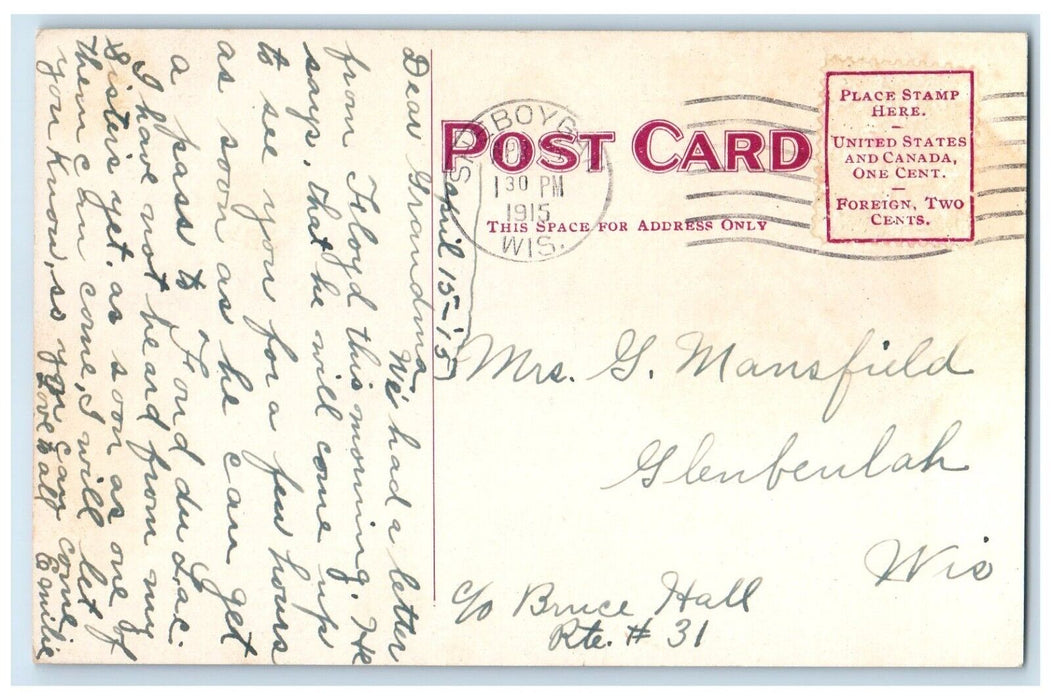 POST CARD
THIS SPACE FOR ADDRESS ONLY
PLACE STAMP
HERE.
—
UNITED STATES
AND CANADA,
ONE CENT.
—
FOREIGN, TWO
CENTS.
SHEBOYG
1 30 PM
1915
WIS.
april 15-'15
Dear Grandma,
We had a letter
from Floyd this morning. He
says, that he will come up
to see you for a few hours
as soon as he can get
a pass to Fond du Lac.
I have not heard from my
sisters yet. as soon as one of
them can come, I will let
you know, so you can come,
Love to all Emilie
Mrs. G. Mansfield
Glenbeulah
Wis
c/o Bruce Hall
Rte. # 31